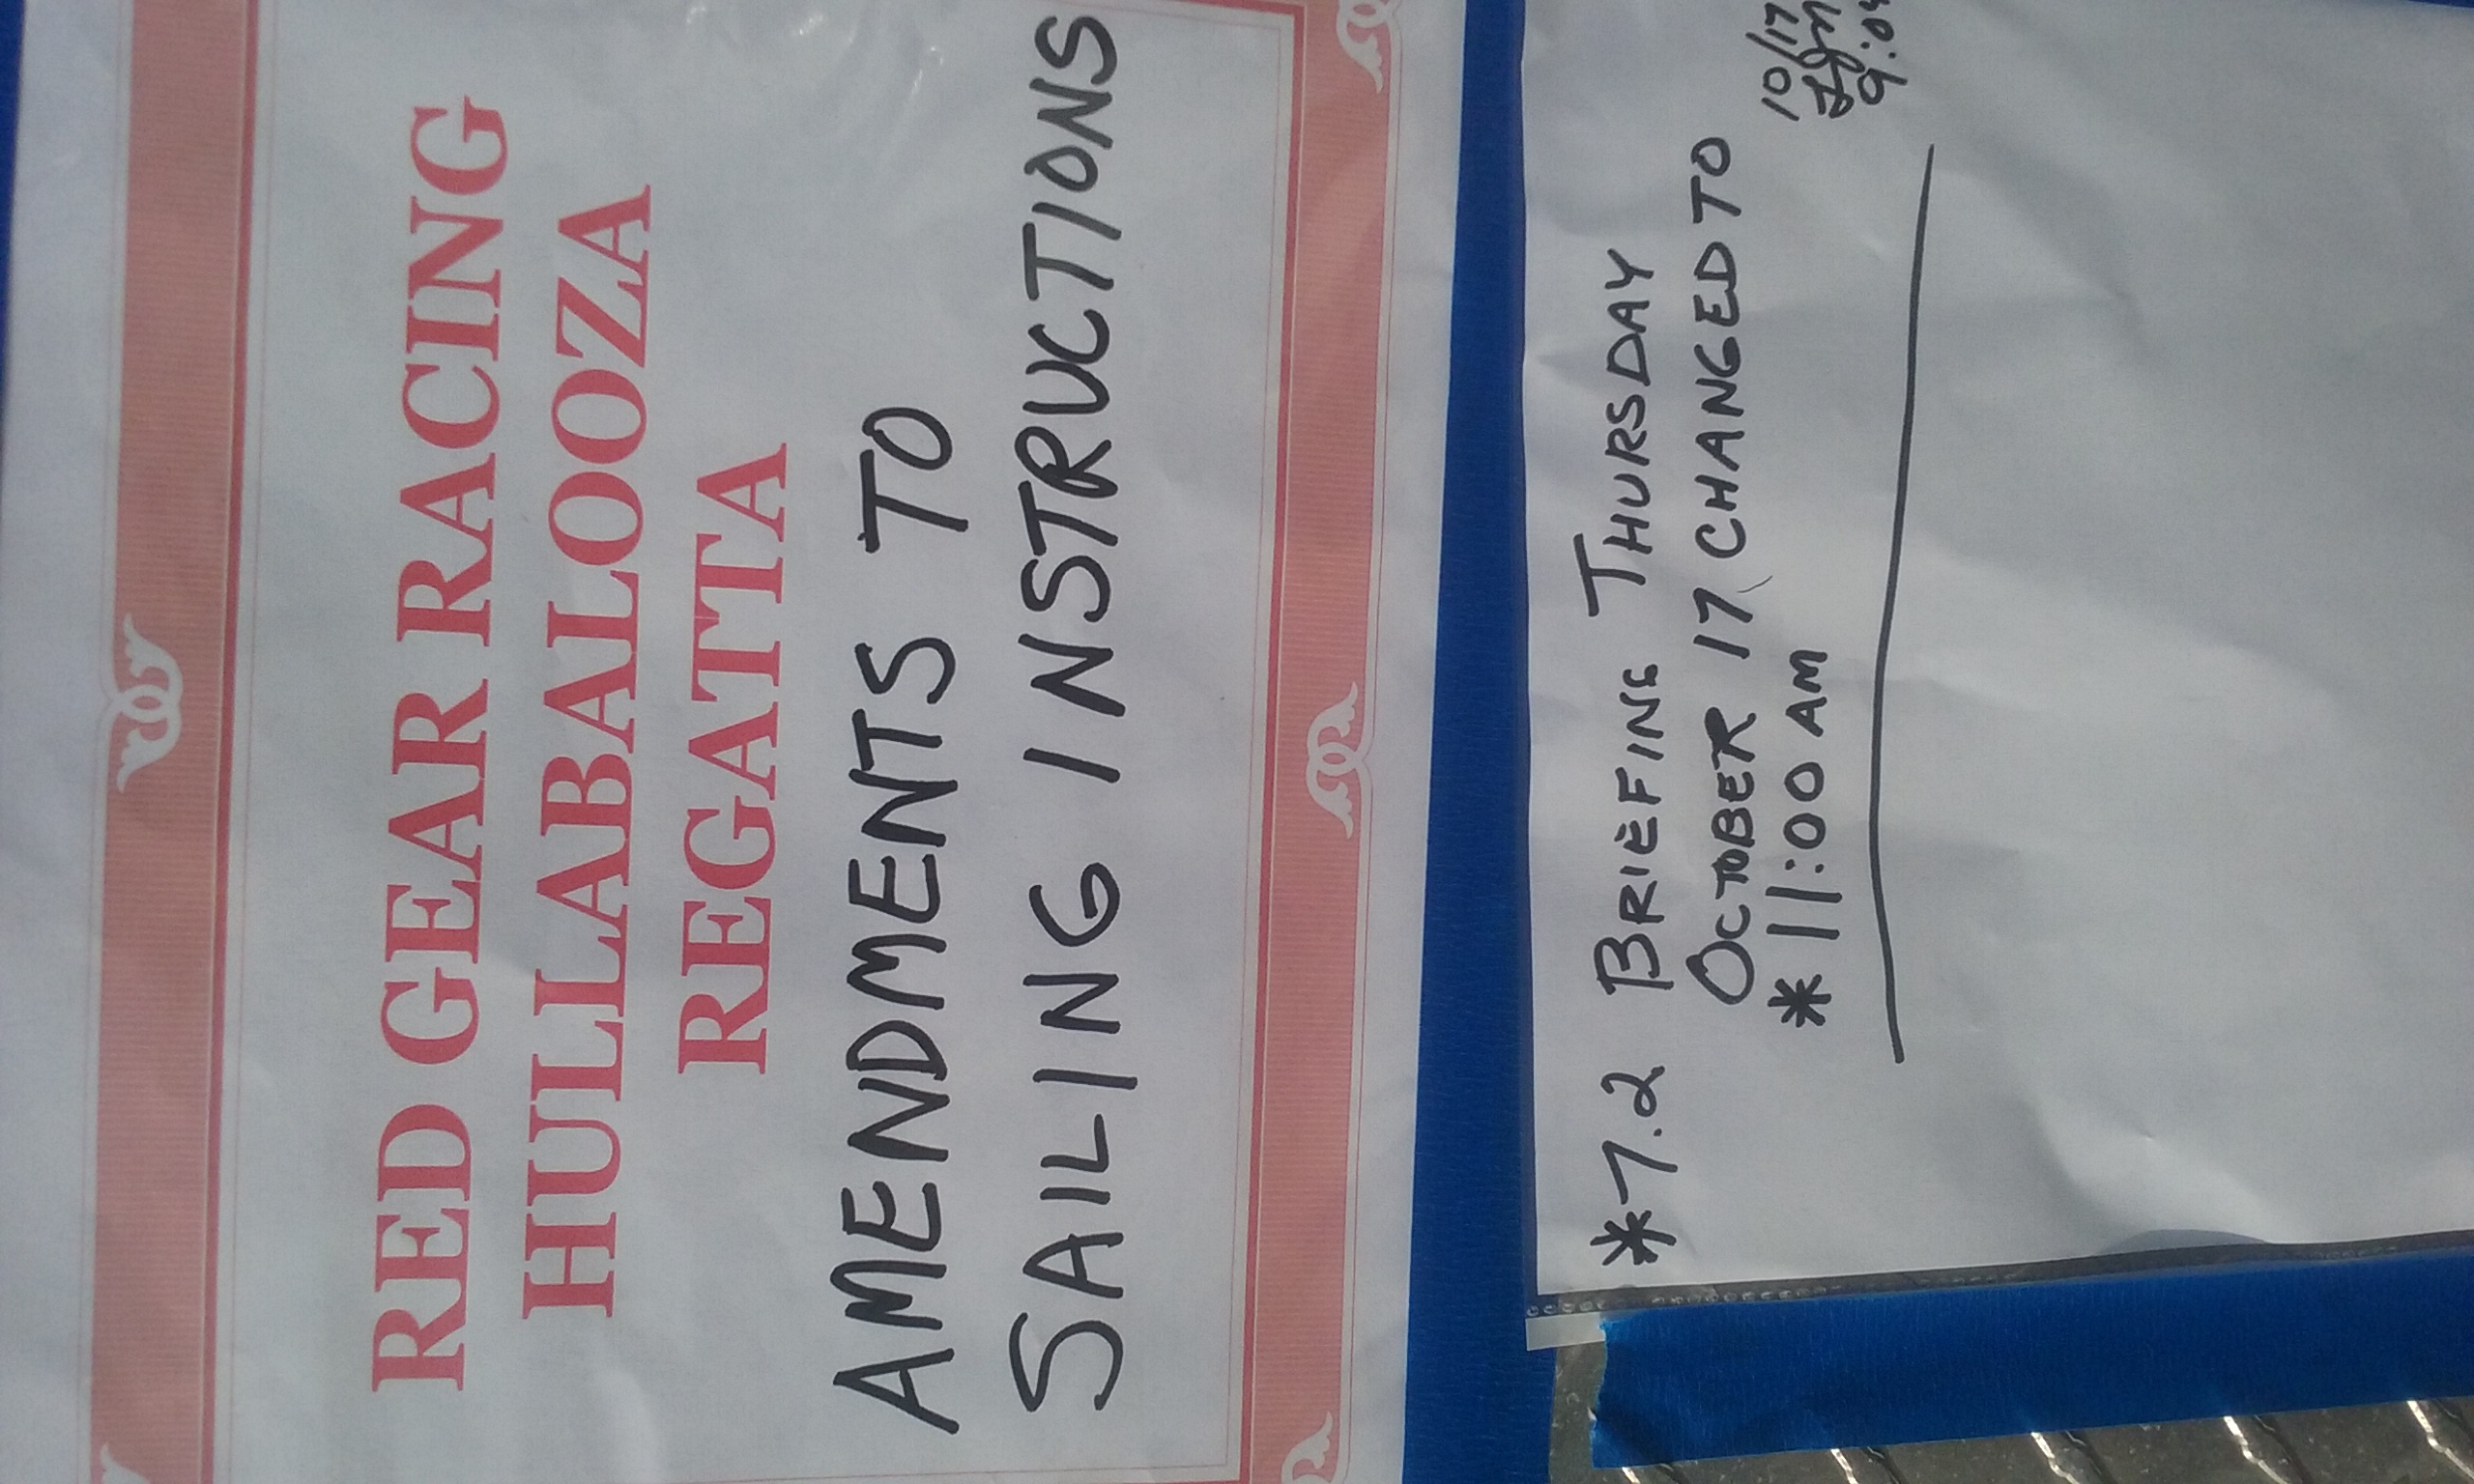 RED GEAR RACING
HULLABALOOZA
REGATTA
AMENDMENTS TO
SAILING INSTRUCTIONS
*7.2 BRIEFING THURSDAY
OCTOBER 17 CHANGED TO
* 11:00 AM
10/17